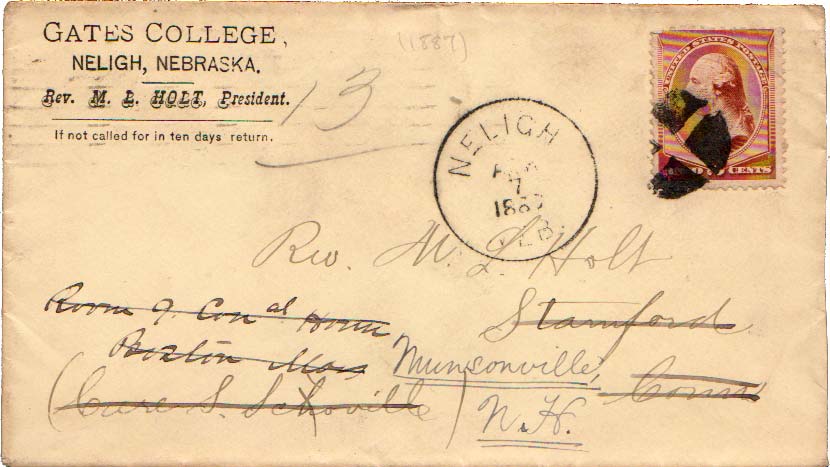 GATES COLLEGE,
NELIGH, NEBRASKA.
Rev. M. L. HOLT, President.
If not called for in ten days return.
(1887)
13
UNITED STATES POSTAGE
CENTS
NELIGH
7
188
NEB.
Rev. M. L. Holt
Stamford
Conn
Room 9. Con'al Home
Boston Mass
(Care S. Schoville)
Munsonville,
N.H.